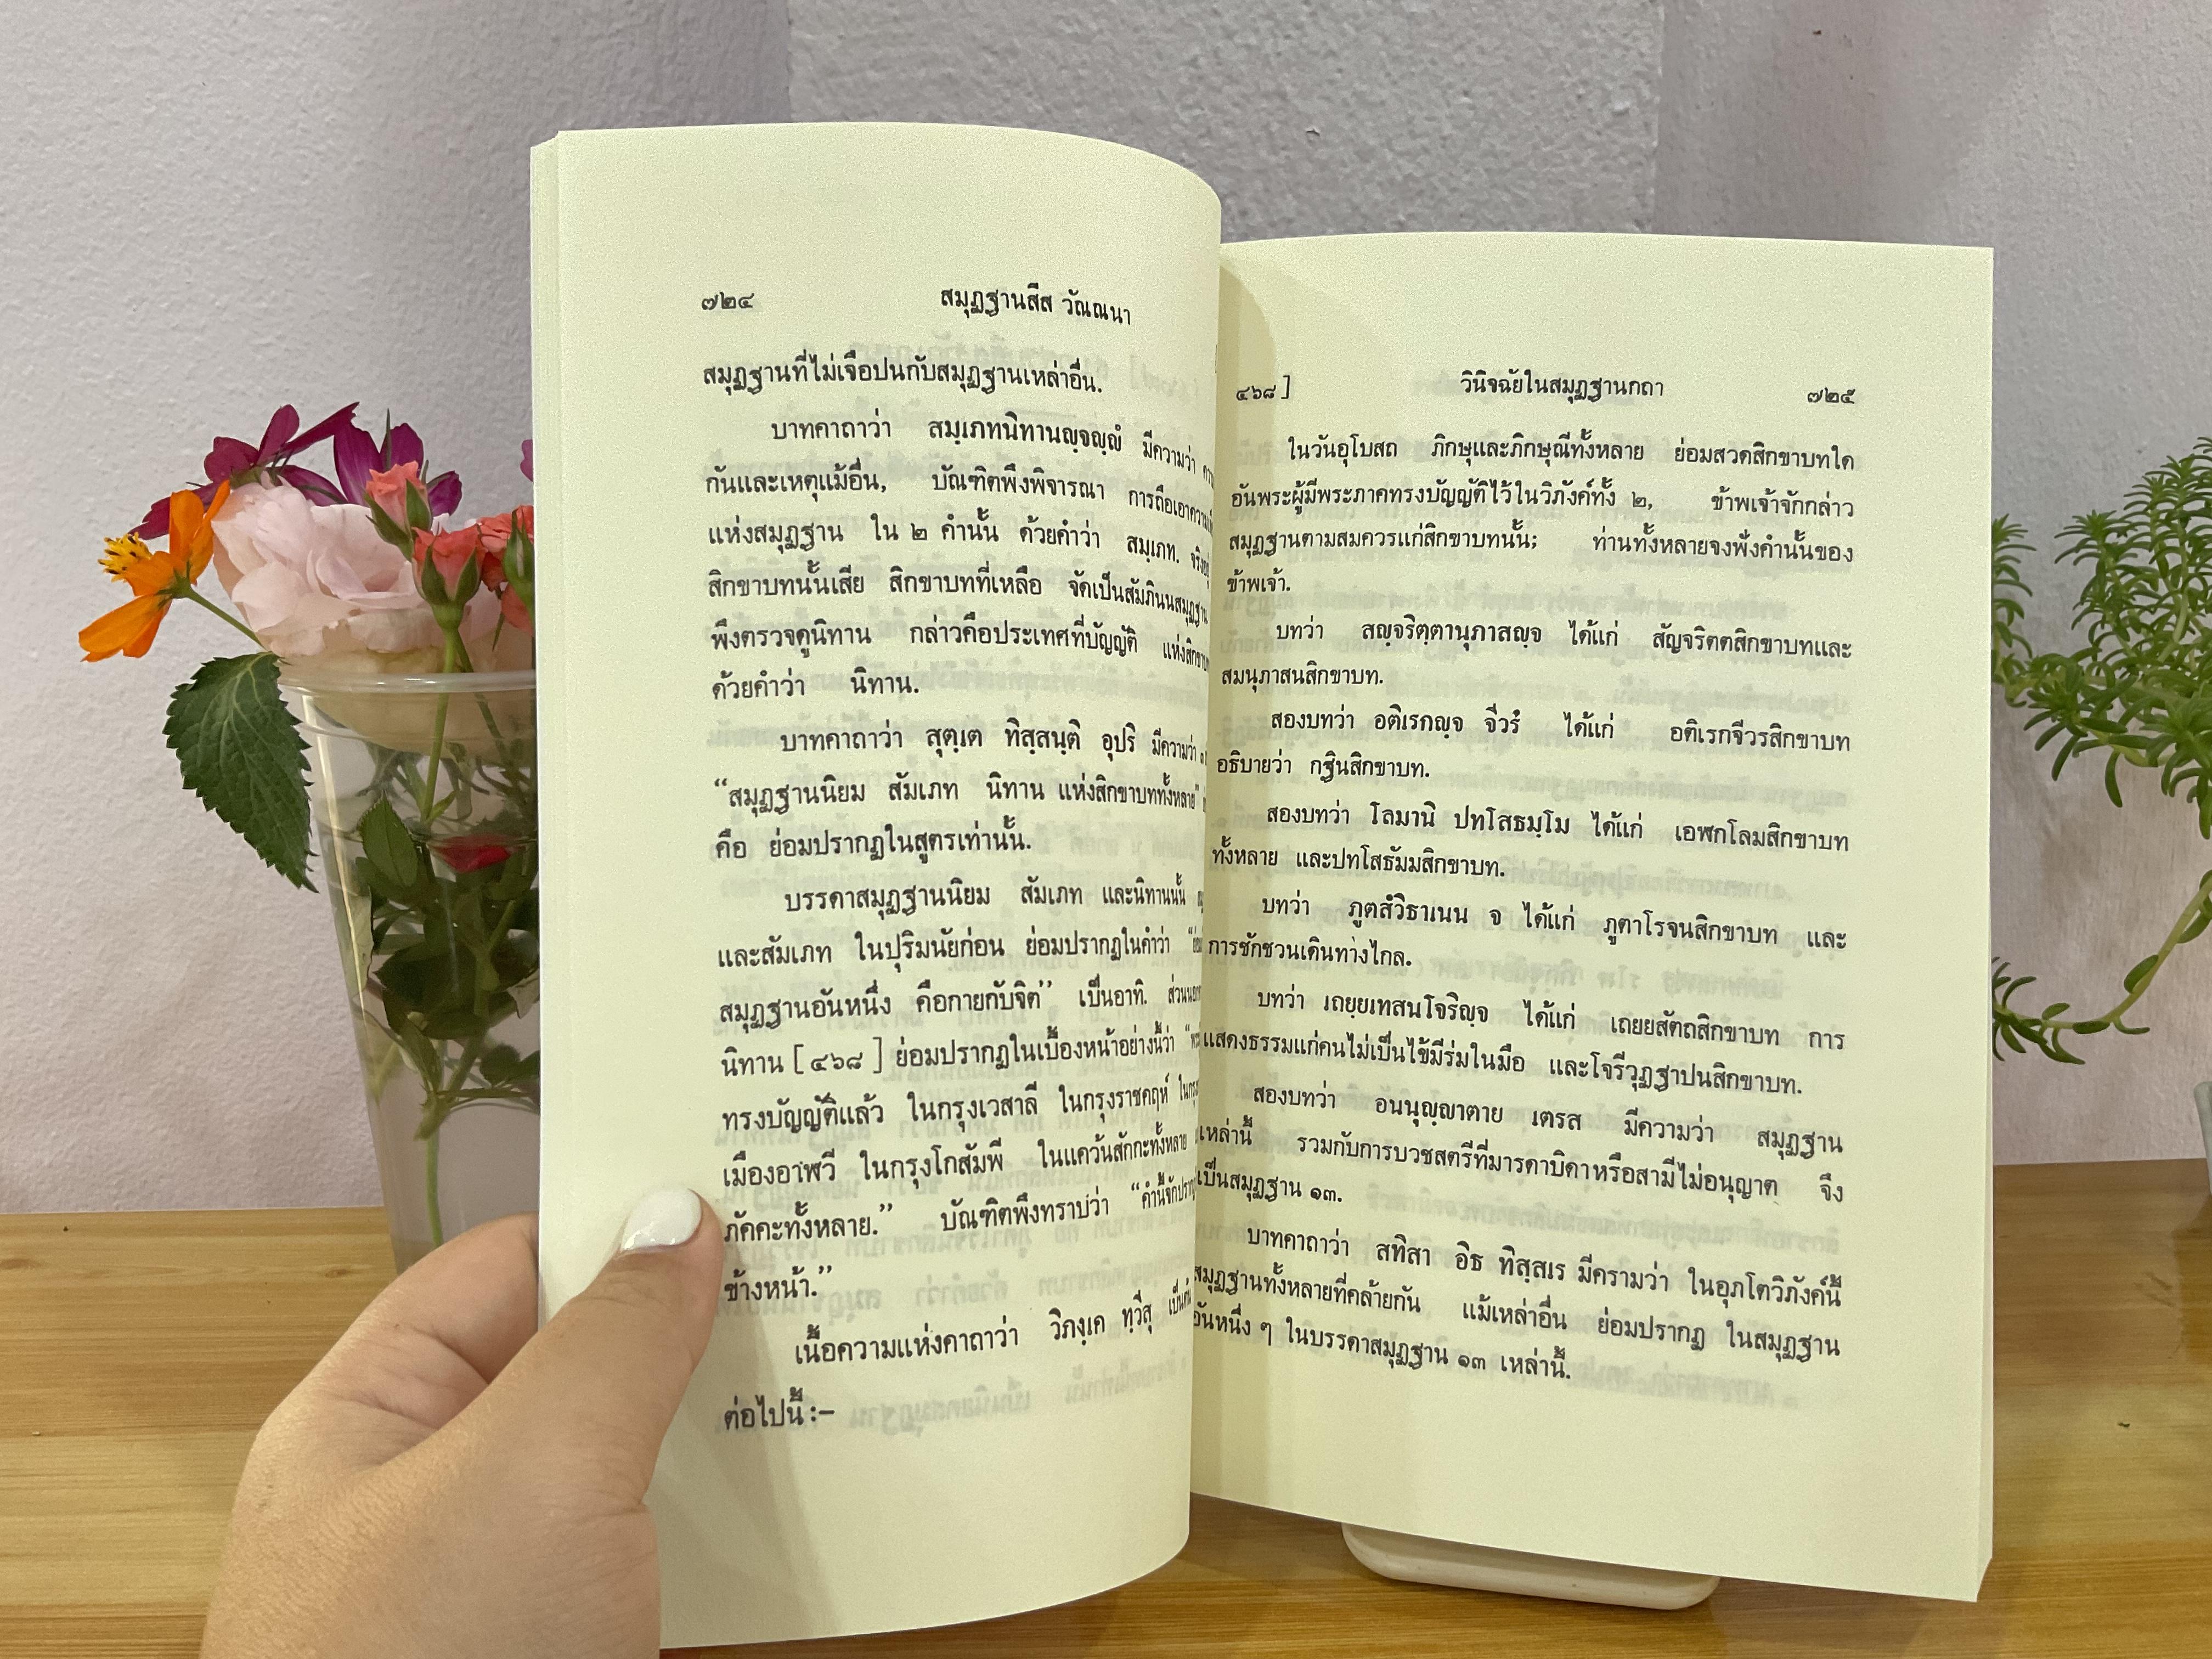 ๗๒๔ สมุฏฐานสีส วัณณนา
สมุฏฐานที่ไม่เจือปนกับสมุฏฐานเหล่าอื่น.
บาทคาถาว่า สมฺเภทนิทานญฺจญฺญํ มีความว่า
กันและเหตุแม้อื่น, บัณฑิตพึงพิจารณา การถือเอาความ
แห่งสมุฏฐาน ใน ๒ คำนั้น ด้วยคำว่า สมฺเภท.
สิกขาบทนั้นเสีย สิกขาบทที่เหลือ จัดเป็นสัมภินนสมุฏฐาน
พึงตรวจดูนิทาน กล่าวคือประเทศที่บัญญัติ แห่งสิกขาบท
ด้วยคำว่า นิทาน.
บาทคาถาว่า สุตฺเต ทิสฺสนฺติ อุปริ มีความว่า
“สมุฏฐานนิยม สัมเภท นิทาน แห่งสิกขาบททั้งหลาย”
คือ ย่อมปรากฏในสูตรเท่านั้น.
บรรดาสมุฏฐานนิยม สัมเภท และนิทานนั้น
และสัมเภท ในปุริมนัยก่อน ย่อมปรากฏในคำว่า
สมุฏฐานอันหนึ่ง คือกายกับจิต” เป็นอาทิ. ส่วน
นิทาน [๔๖๘] ย่อมปรากฏในเบื้องหน้าอย่างนี้ว่า
ทรงบัญญัติแล้ว ในกรุงเวสาลี ในกรุงราชคฤห์
เมืองอาฬวี ในกรุงโกสัมพี ในแคว้นสักกะทั้งหลาย
ภัคคะทั้งหลาย.” บัณฑิตพึงทราบว่า “คำนี้จักปรากฏ
ข้างหน้า.”
เนื้อความแห่งคาถาว่า วิภงฺเค ทฺวีสุ เป็นต้น
ต่อไปนี้ :–
๔๖๘] วินิจฉัยในสมุฏฐานกถา ๗๒๕
ในวันอุโบสถ ภิกษุและภิกษุณีทั้งหลาย ย่อมสวดสิกขาบทใด
อันพระผู้มีพระภาคทรงบัญญัติไว้ในวิภังค์ทั้ง ๒, ข้าพเจ้าจักกล่าว
สมุฏฐานตามสมควรแก่สิกขาบทนั้น; ท่านทั้งหลายจงฟังคำนั้นของ
ข้าพเจ้า.
บทว่า สญฺจริตฺตานุภาสญฺจ ได้แก่ สัญจริตตสิกขาบทและ
สมนุภาสนสิกขาบท.
สองบทว่า อติเรกญฺจ จีวรํ ได้แก่ อติเรกจีวรสิกขาบท
อธิบายว่า กฐินสิกขาบท.
สองบทว่า โลมานิ ปทโสธมฺโม ได้แก่ เอฬกโลมสิกขาบท
ทั้งหลาย และปทโสธัมมสิกขาบท.
บทว่า ภูตสํวิธาเนน จ ได้แก่ ภูตาโรจนสิกขาบท และ
การชักชวนเดินทางไกล.
บทว่า เถยฺยเทสนโจริญฺจ ได้แก่ เถยยสัตถสิกขาบท การ
แสดงธรรมแก่คนไม่เป็นไข้มีร่มในมือ และโจรีวุฏฐาปนสิกขาบท.
สองบทว่า อนนุญฺญาตาย เตรส มีความว่า สมุฏฐาน
เหล่านี้ รวมกับการบวชสตรีที่มารดาบิดาหรือสามีไม่อนุญาต จึง
เป็นสมุฏฐาน ๑๓.
บาทคาถาว่า สทิสา อิธ ทิสฺสเร มีความว่า ในอุภโตวิภังค์นี้
สมุฏฐานทั้งหลายที่คล้ายกัน แม้เหล่าอื่น ย่อมปรากฏ ในสมุฏฐาน
อันหนึ่ง ๆ ในบรรดาสมุฏฐาน ๑๓ เหล่านี้.